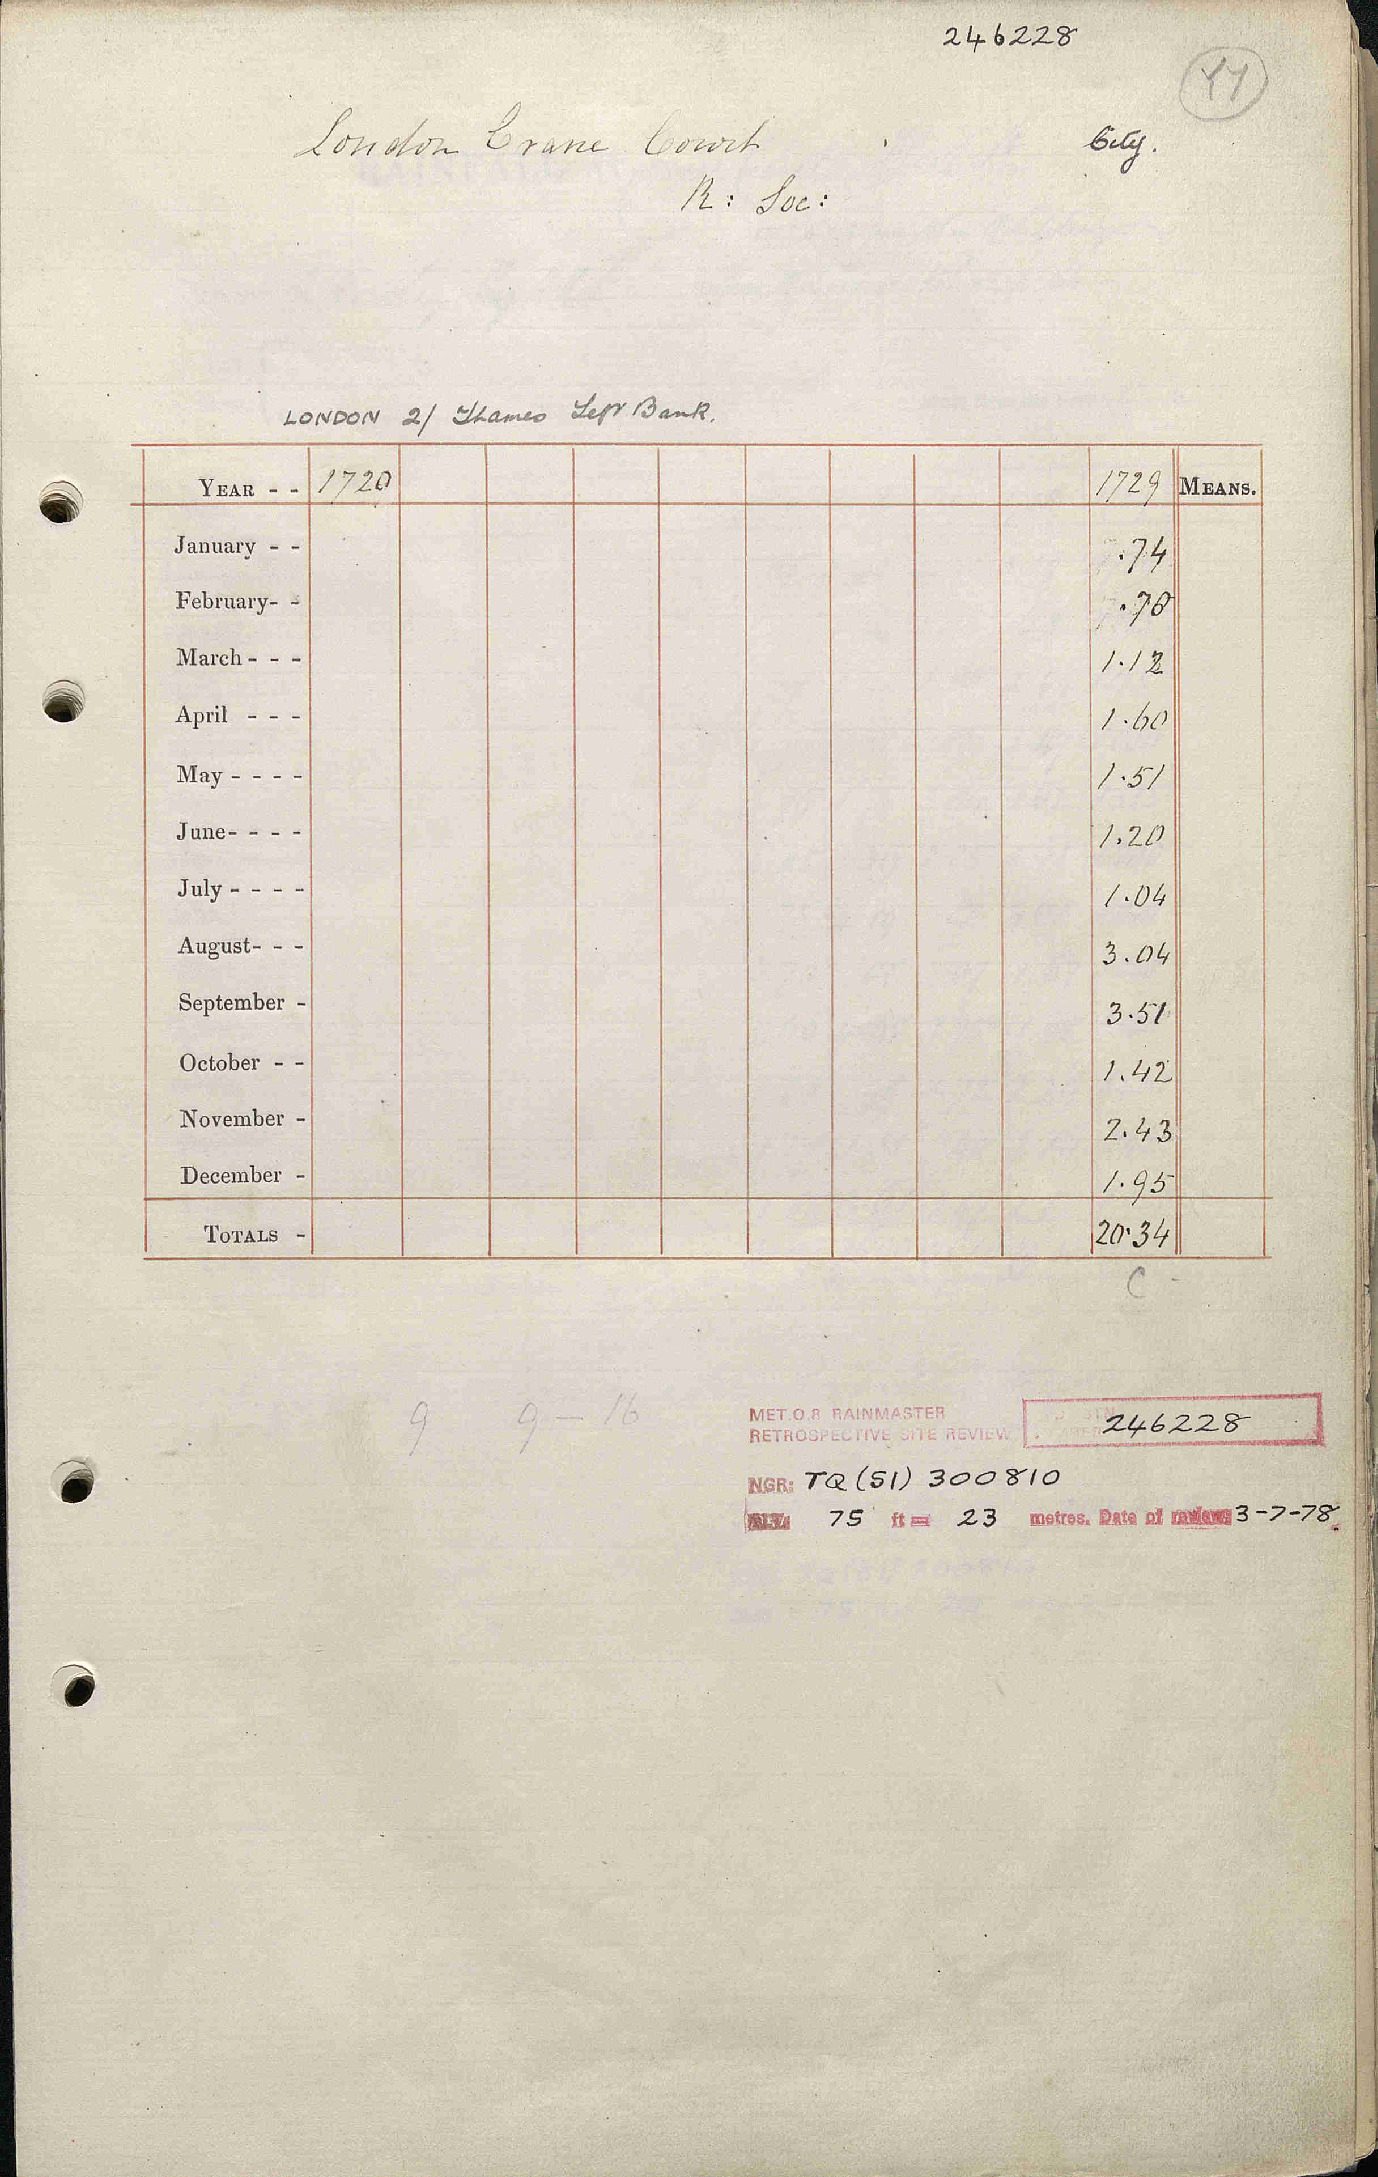 246228
London Crane Court City.
R: Soc:
LONDON 2/ Thames Left Bank.
YEAR - - 1720 1729 MEANS.
January - - .74
February- - .78
March - - - 1.12
April - - - 1.60
May - - - - 1.51
June- - - - 1.20
July - - - - 1.04
August- - - 3.04
September - 3.51
October - - 1.42
November - 2.43
December - 1.95
TOTALS - 20.34
C -
9 9 - 16
MET.O.8 RAINMASTER
RETROSPECTIVE SITE REVIEW 246228
NGR: TQ (51) 300810
ALT: 75 ft = 23 metres. Date of review 3-7-78